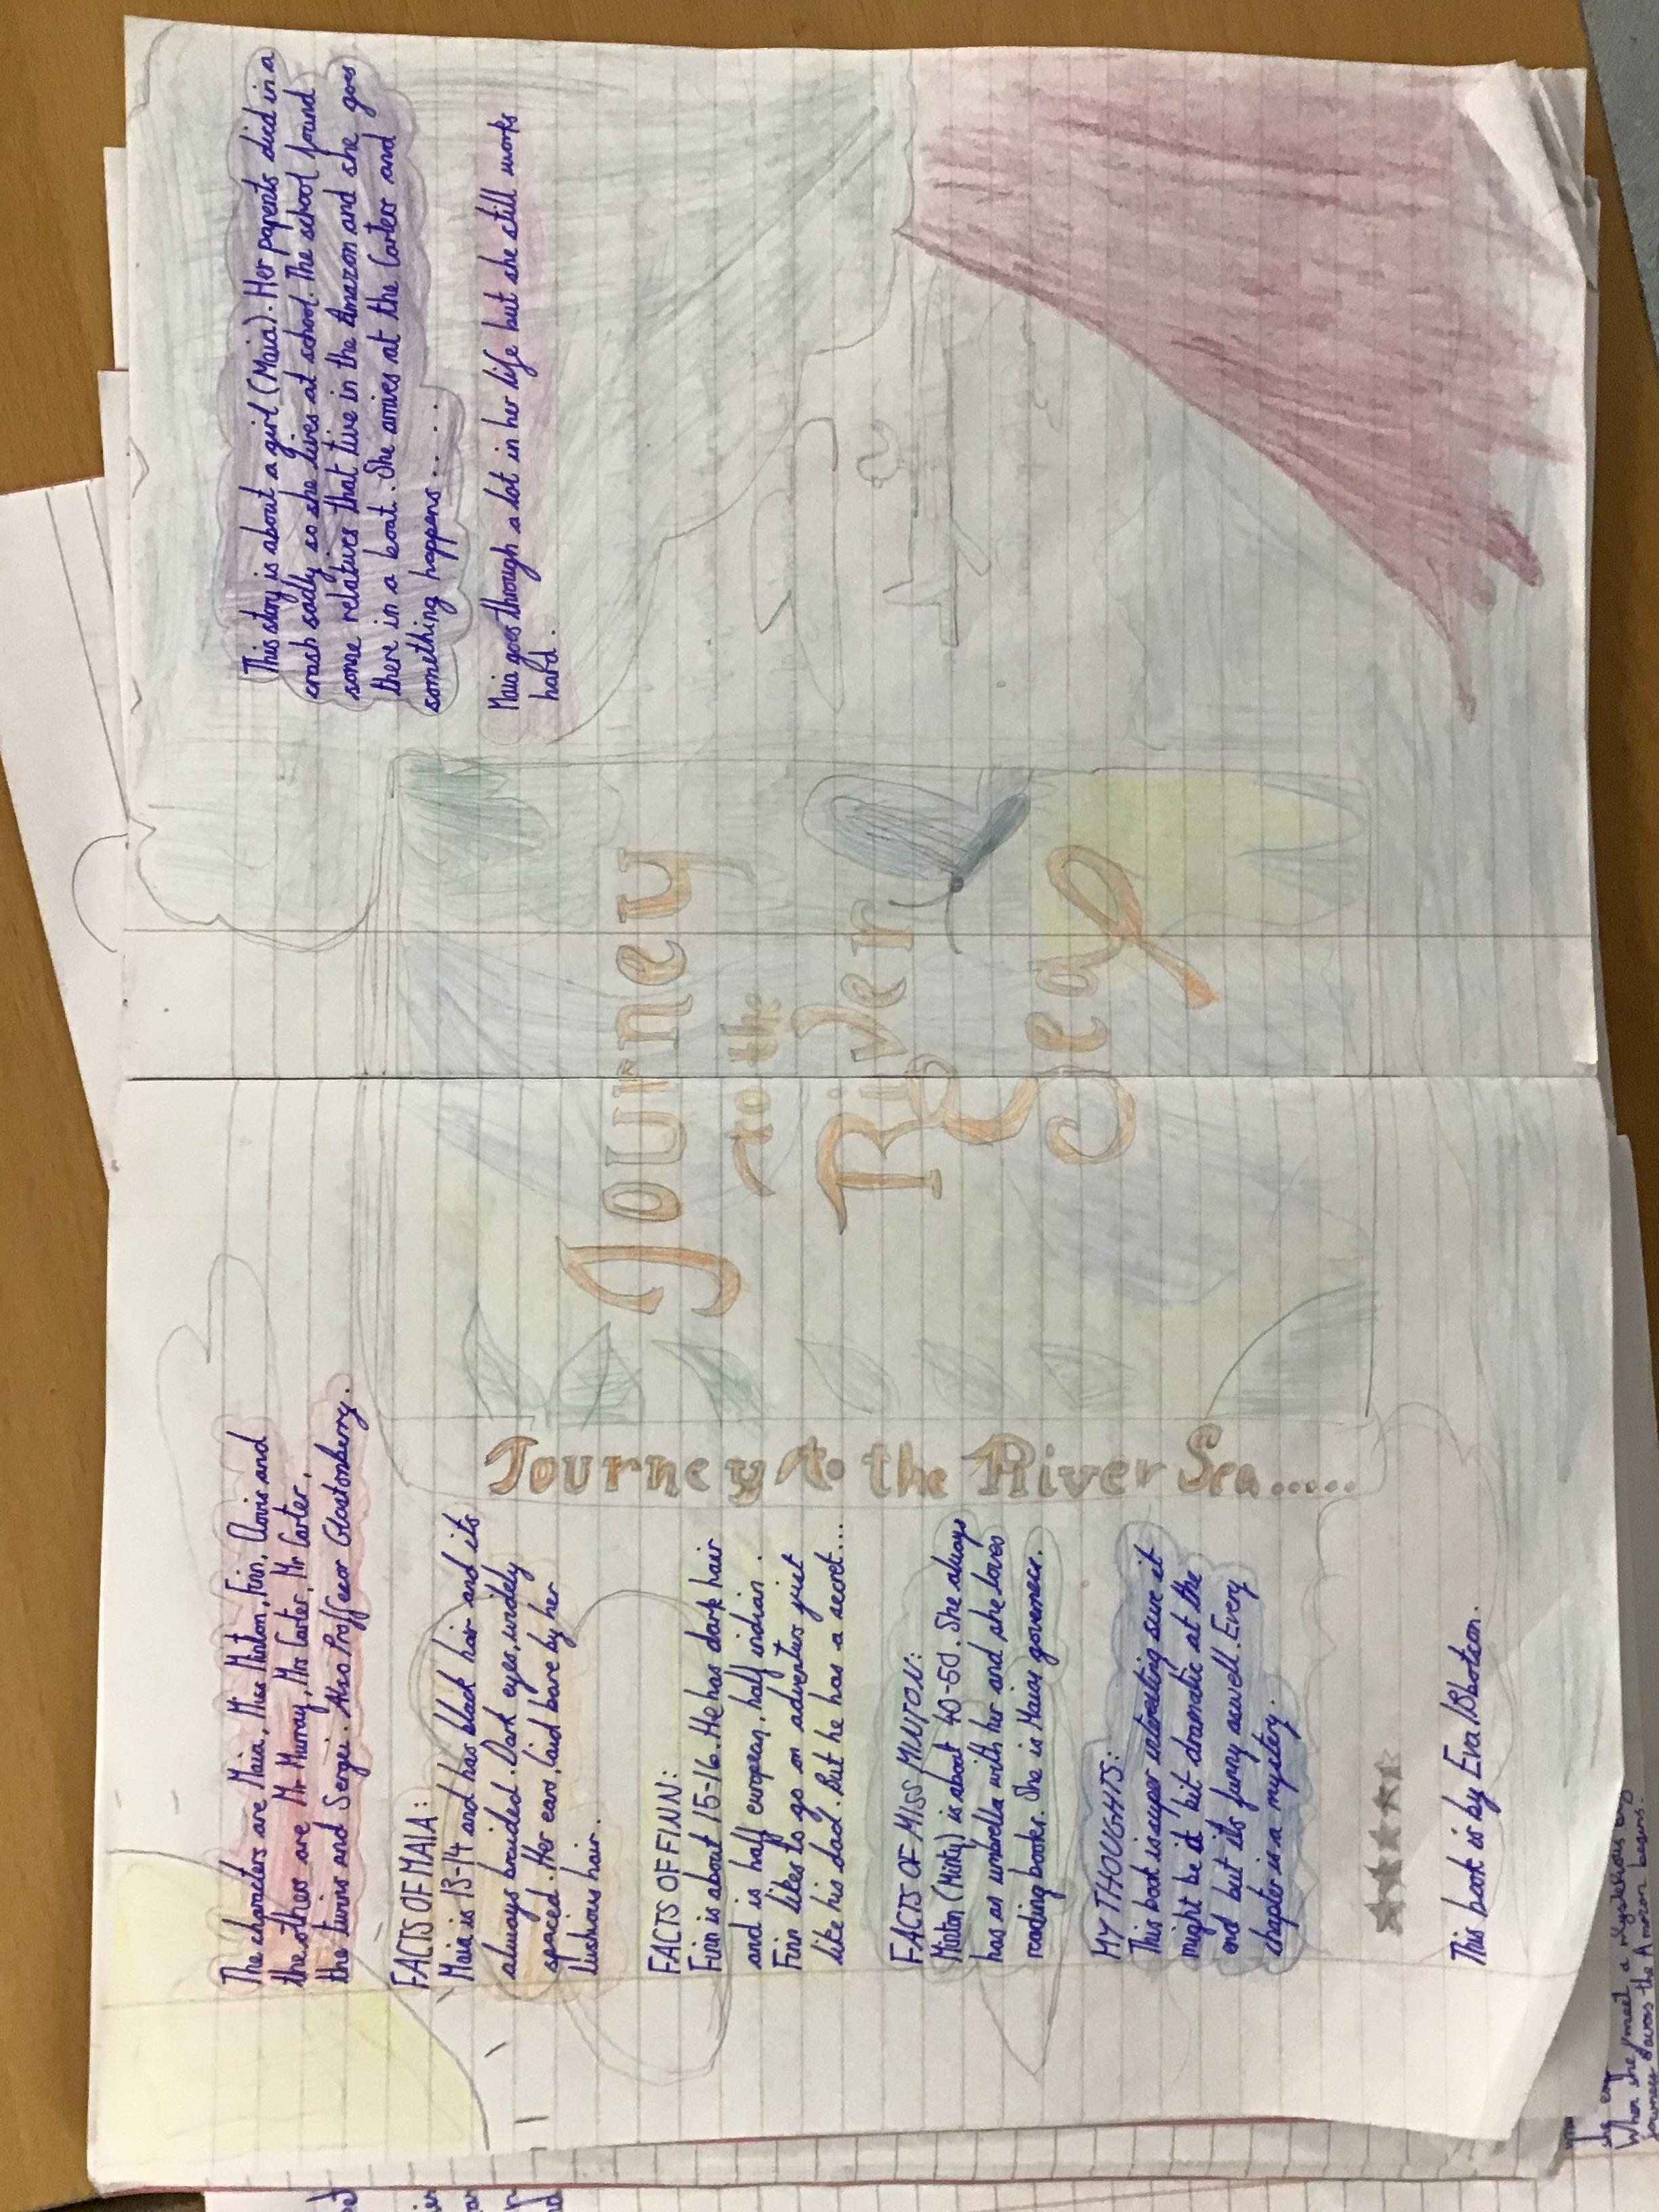 The characters are Maia, Miss Minton, Finn, Clovis and
the others are Mr Murray, Mrs Carter, Mr Carter,
the twins and Sergei. Also Proffessor Glastonberry.
FACTS OF MAIA:
Maia is 13-14 and has black hair and its
always braided. Dark eyes, widely
spaced. Her ears, laid bare by her
lushious hair.
FACTS OF FINN:
Finn is about 15-16. He has dark hair
and is half european, half indian.
Finn likes to go on adventurs just
like his dad. But he has a secret...
FACTS OF MISS MINTON:
Minton (Minty) is about 40-50. She always
has an umbrella with her and she loves
reading books. She is Maias governess.
MY THOUGHTS:
This book is super interesting sure it
might be a bit dramatic at the
end but its funny aswell. Every
chapter is a mystery.
This book is by Eva Ibbotson.
Journey to the River Sea......
Journey
to the
River
Sea
This story is about a girl (Maia). Her parents died in a
crash sadly so she lives at school. The school found
some relatives that live in the Amazon and she goes
there in a boat. She arrives at the Carters and
something happens.....
Maia goes through a lot in her life but she still works
hard.
When she meet a Mysterious boy
journeys across the Amazon begins.